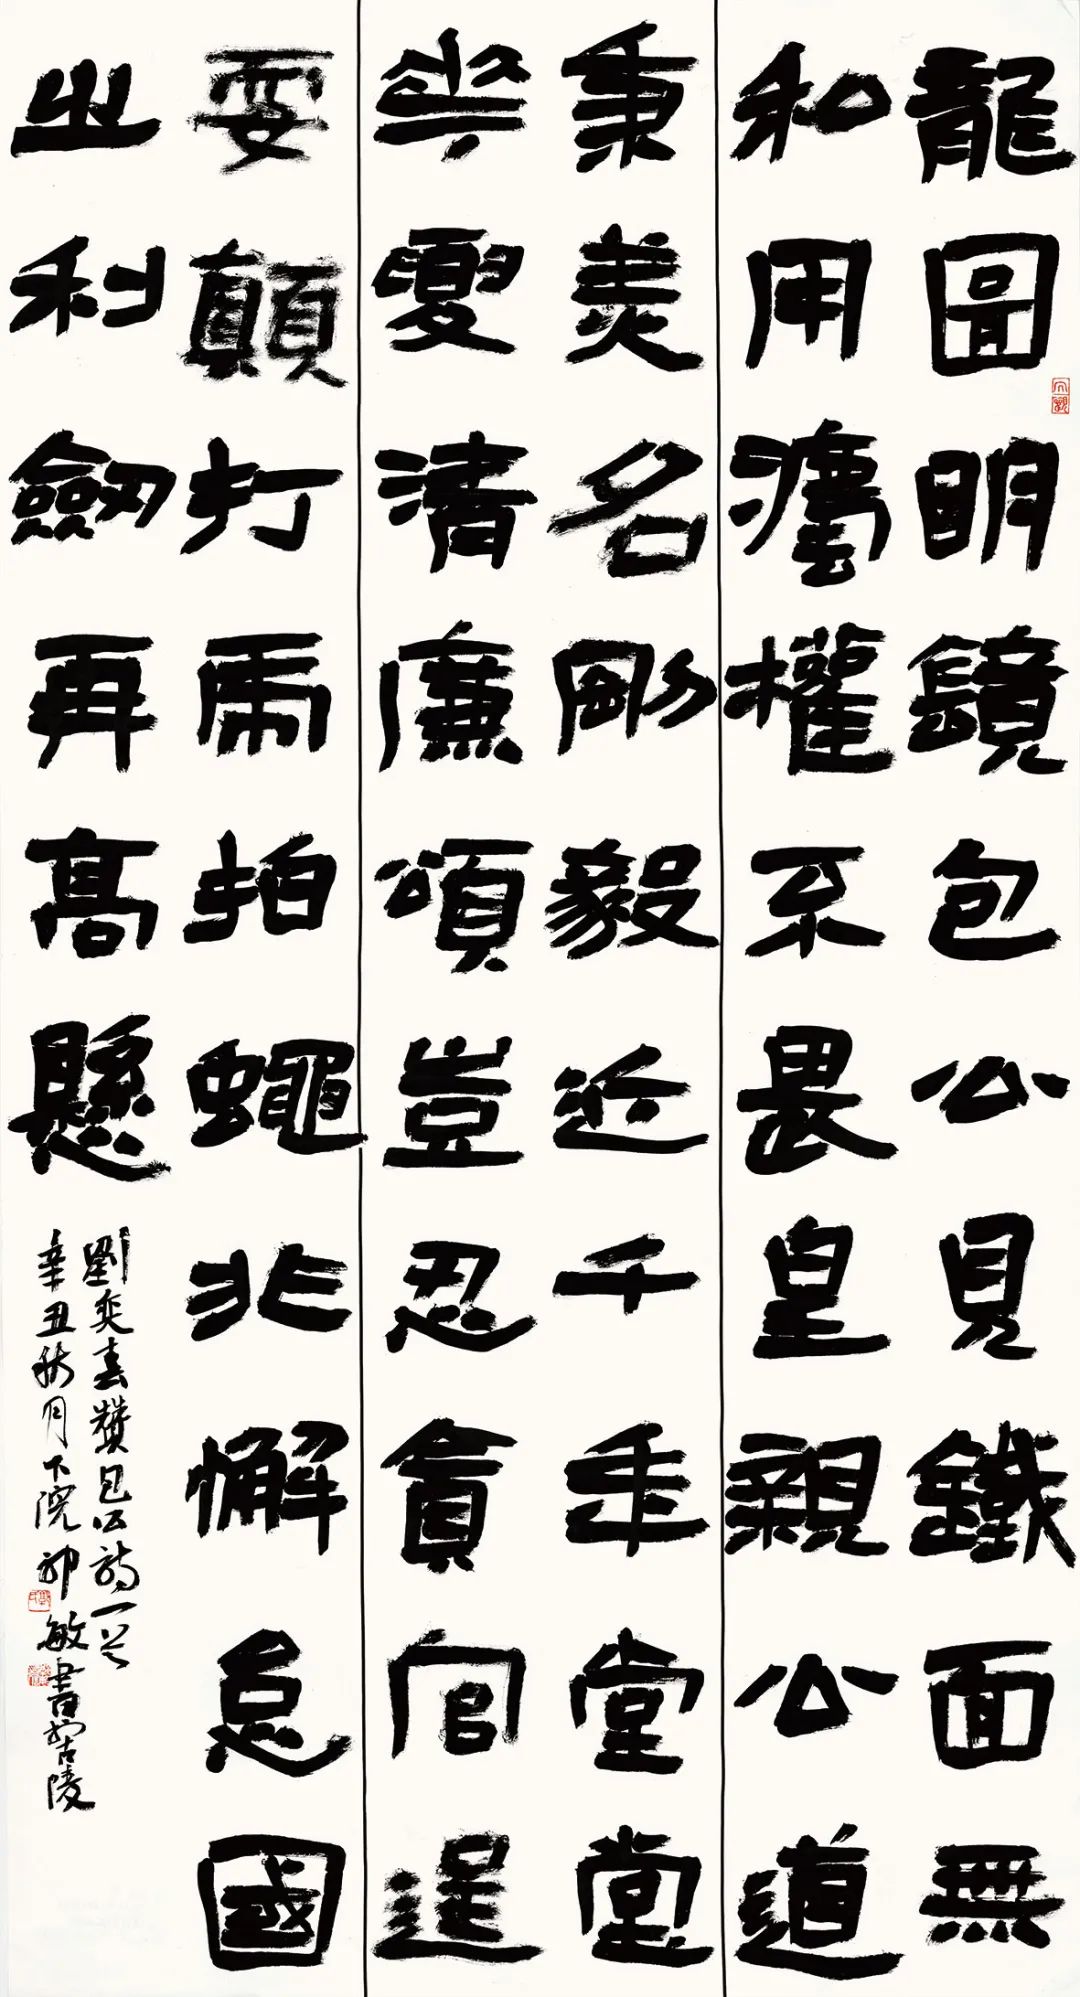 龍圖明鏡包公見鐵面無
私用灋權不畏皇親公道
秉美名剛毅近千年堂堂
華夏清廉頌豈忍貪官逞
耍顛打虎拍蠅非懈怠國
之利劒再高懸
劉奕贊包公詩一首
辛丑秋月下浣敏書於古陵